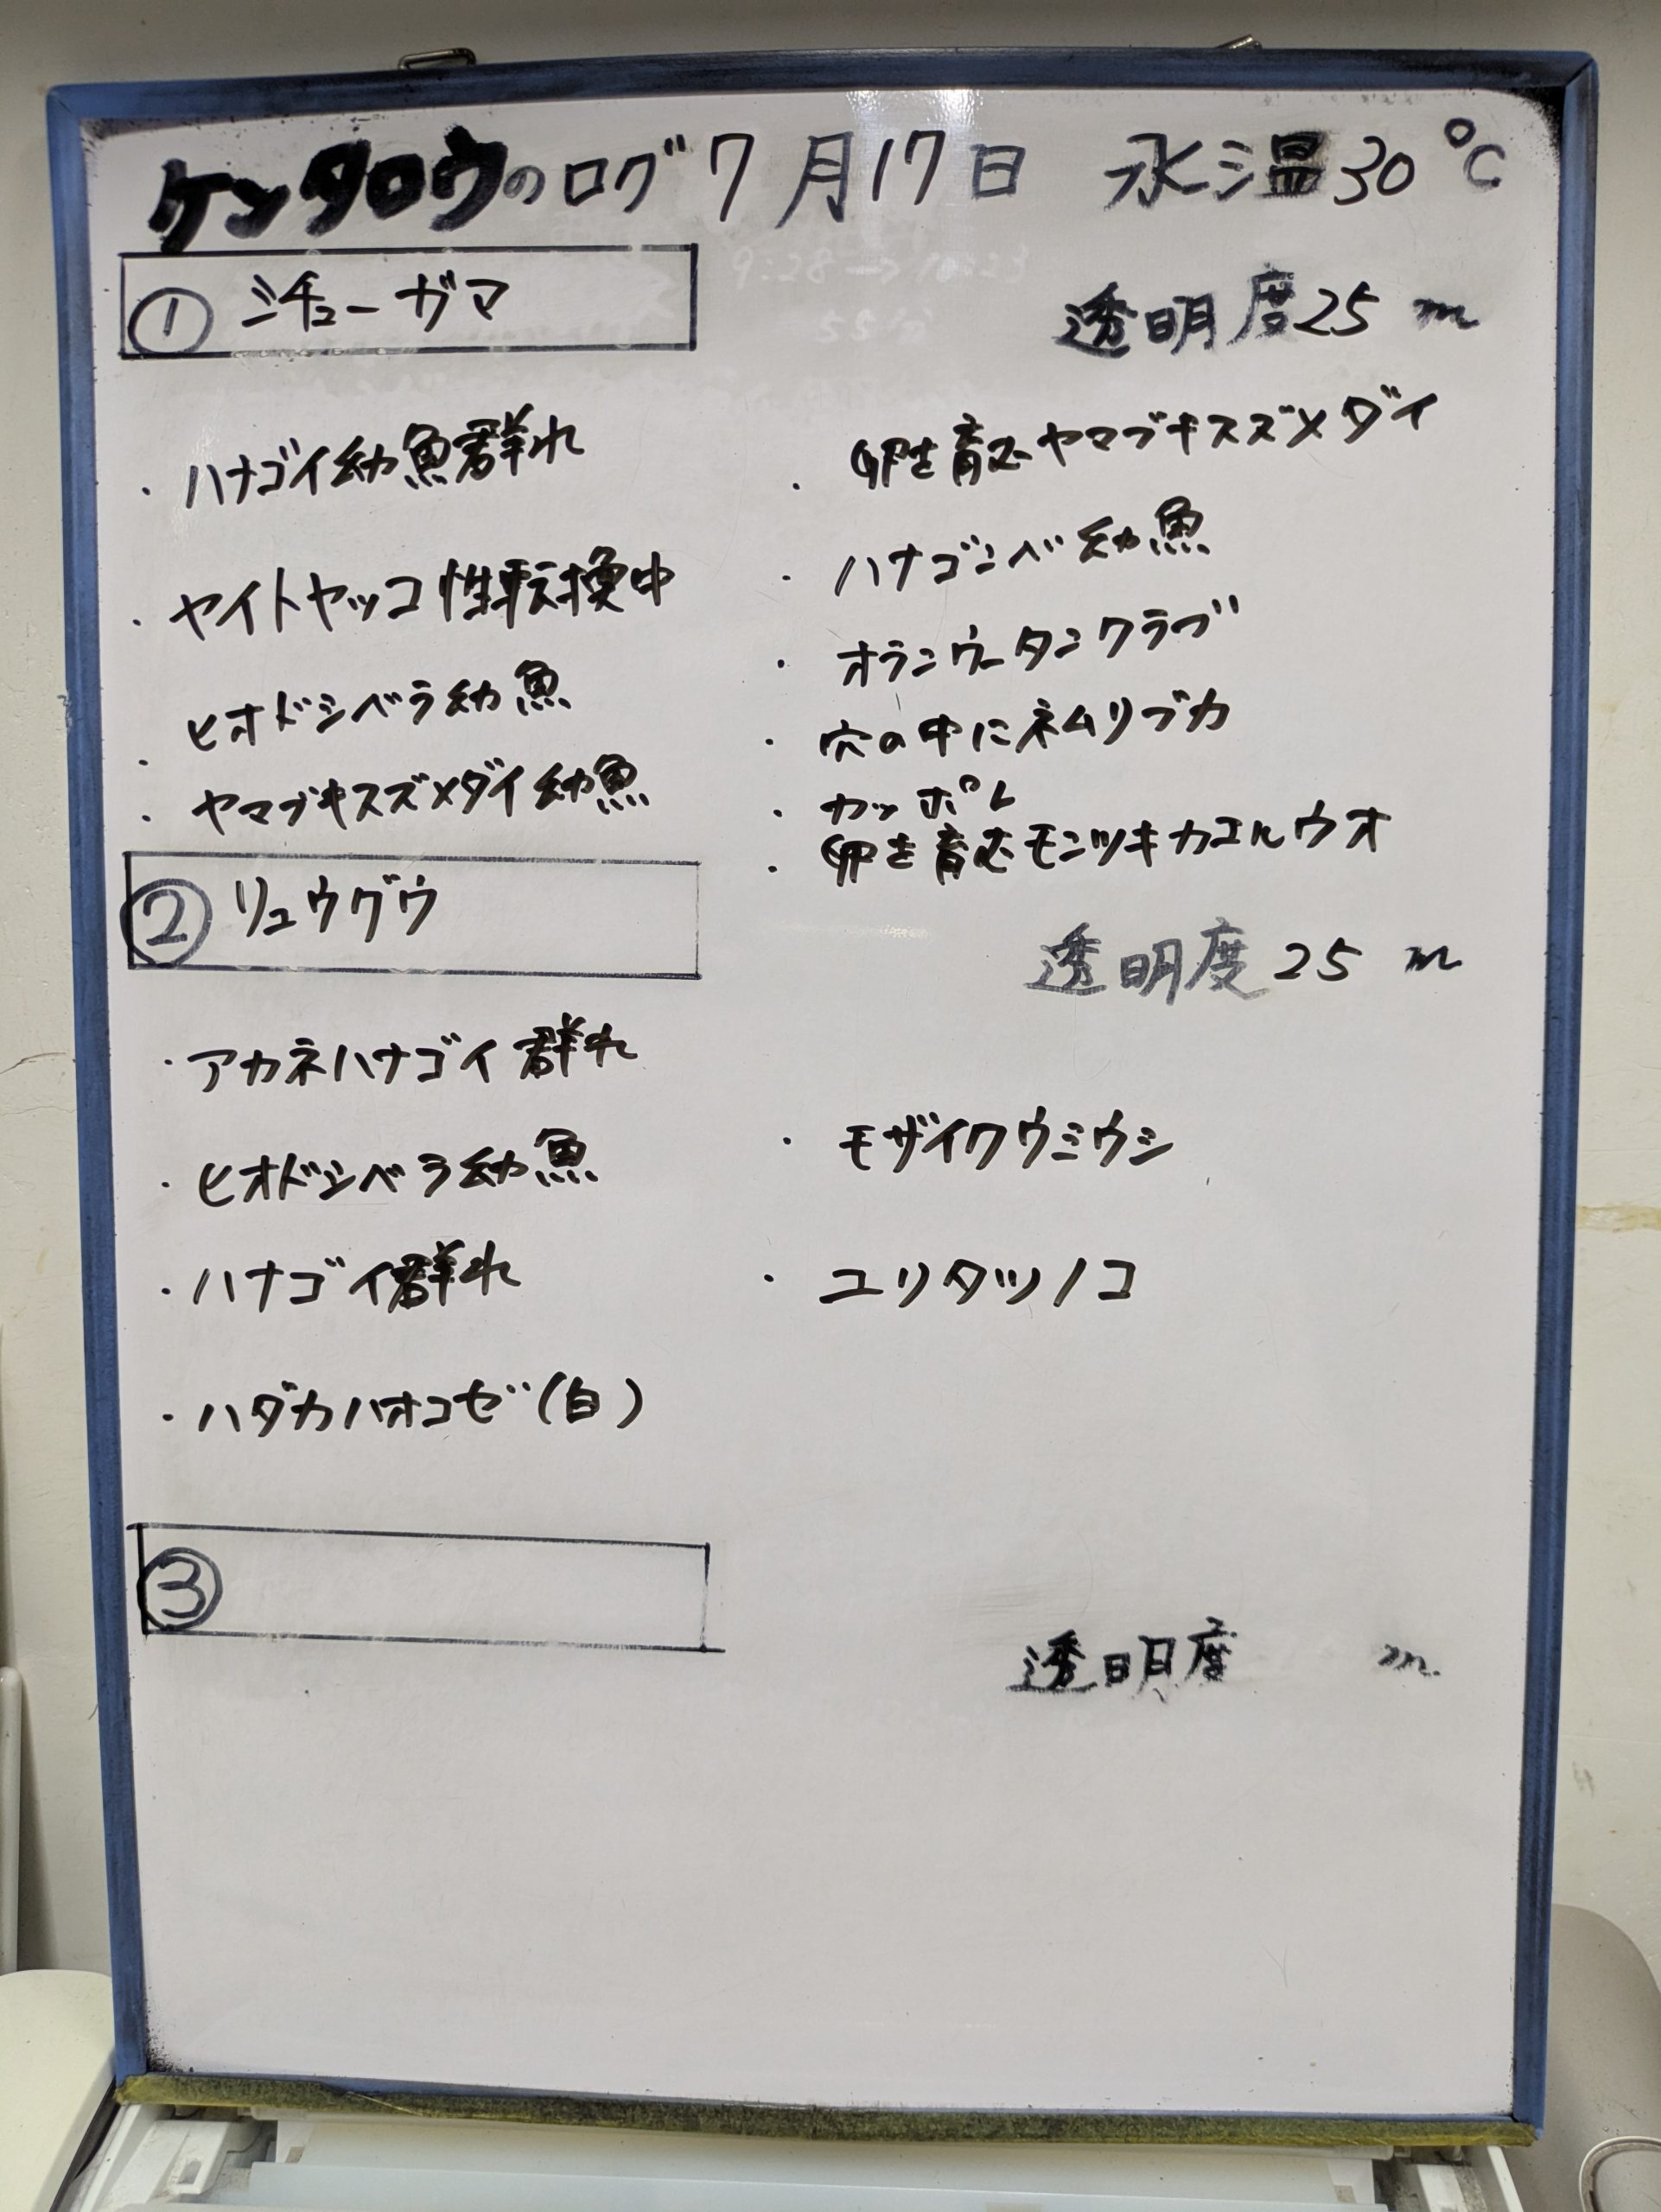 ケンタロウのログ 7月17日 水温30℃
① ミチューガマ
透明度25m
・ハナゴイ幼魚群れ
・ヤイトヤッコ性転換中
・ヒオドシベラ幼魚
・ヤマブキスズメダイ幼魚
・卵を育むヤマブキスズメダイ
・ハナゴンベ幼魚
・オランウータンクラブ
・穴の中にネムリブカ
・カッポレ
・卵を育むモンツキカエルウオ
② リュウグウ
透明度25m
・アカネハナゴイ群れ
・ヒオドシベラ幼魚
・ハナゴイ群れ
・ハダカハオコゼ(白)
・モザイクウミウシ
・ユリタツノコ
③
透明度 m